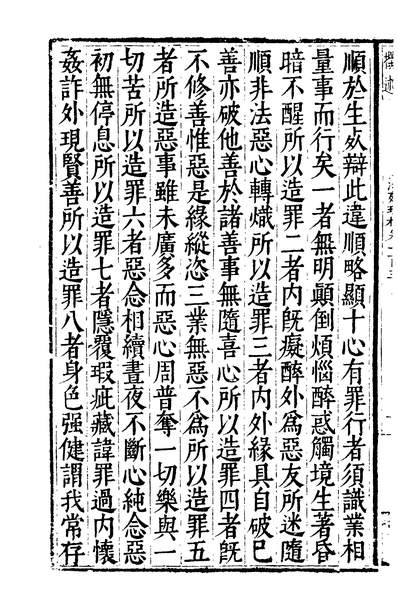 順於生死辯此違順略顯十心有罪行者須識業相
量事而行矣一者無明顛倒煩惱醉惑觸境生著昏
暗不醒所以造罪二者內旣癡醉外爲惡友所迷隨
順非法惡心轉熾所以造罪三者內外緣具自破已
善亦破他善於諸善事無隨喜心所以造罪四者旣
不修善惟惡是緣縱恣三業無惡不爲所以造罪五
者所造惡事雖未廣多而惡心周普奪一切樂與一
切苦所以造罪六者惡念相續晝夜不斷心純念惡
初無停息所以造罪七者隱覆瑕疵藏諱罪過內懷
姦詐外現賢善所以造罪八者身色强健謂我常存